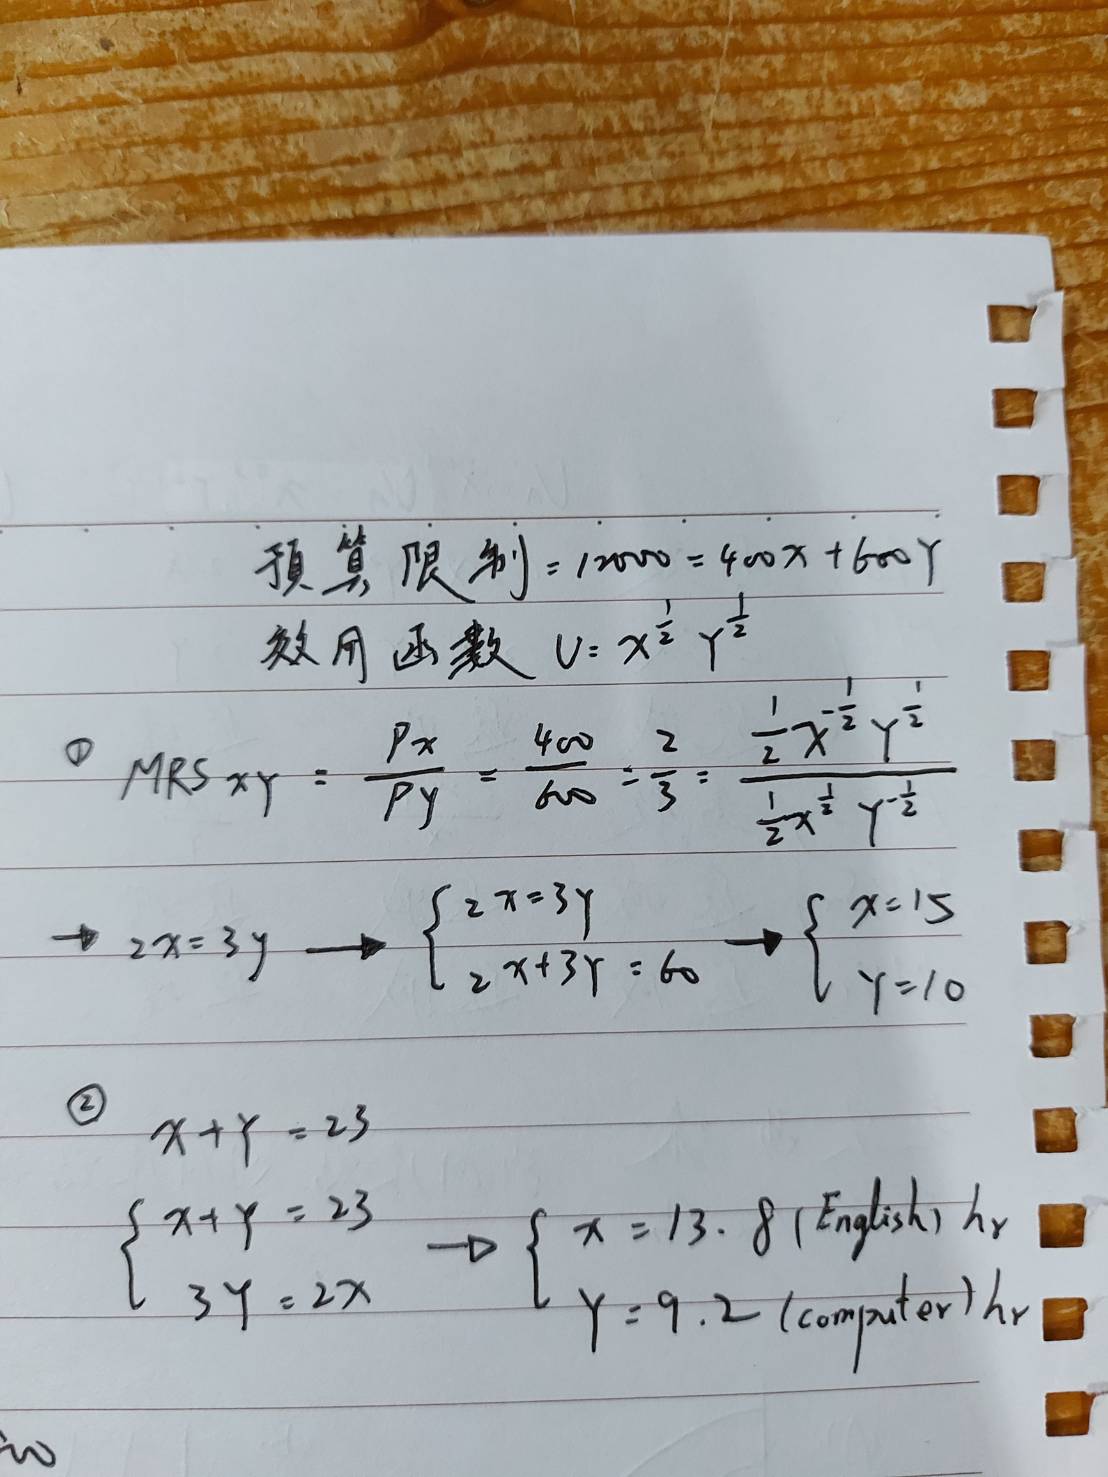 預算限制=12000=400x+600Y
效用函數 U=x^{1/2} Y^{1/2}
① MRS xy = Px/Py = 400/600 = 2/3 = (1/2 x^{-1/2} Y^{1/2})/(1/2 x^{1/2} Y^{-1/2})
→ 2x=3y → { 2x=3y, 2x+3Y=60 → { x=15, Y=10
② x+Y=23
{ x+Y=23, 3Y=2x → { x=13.8 (English) hr, Y=9.2 (computer) hr